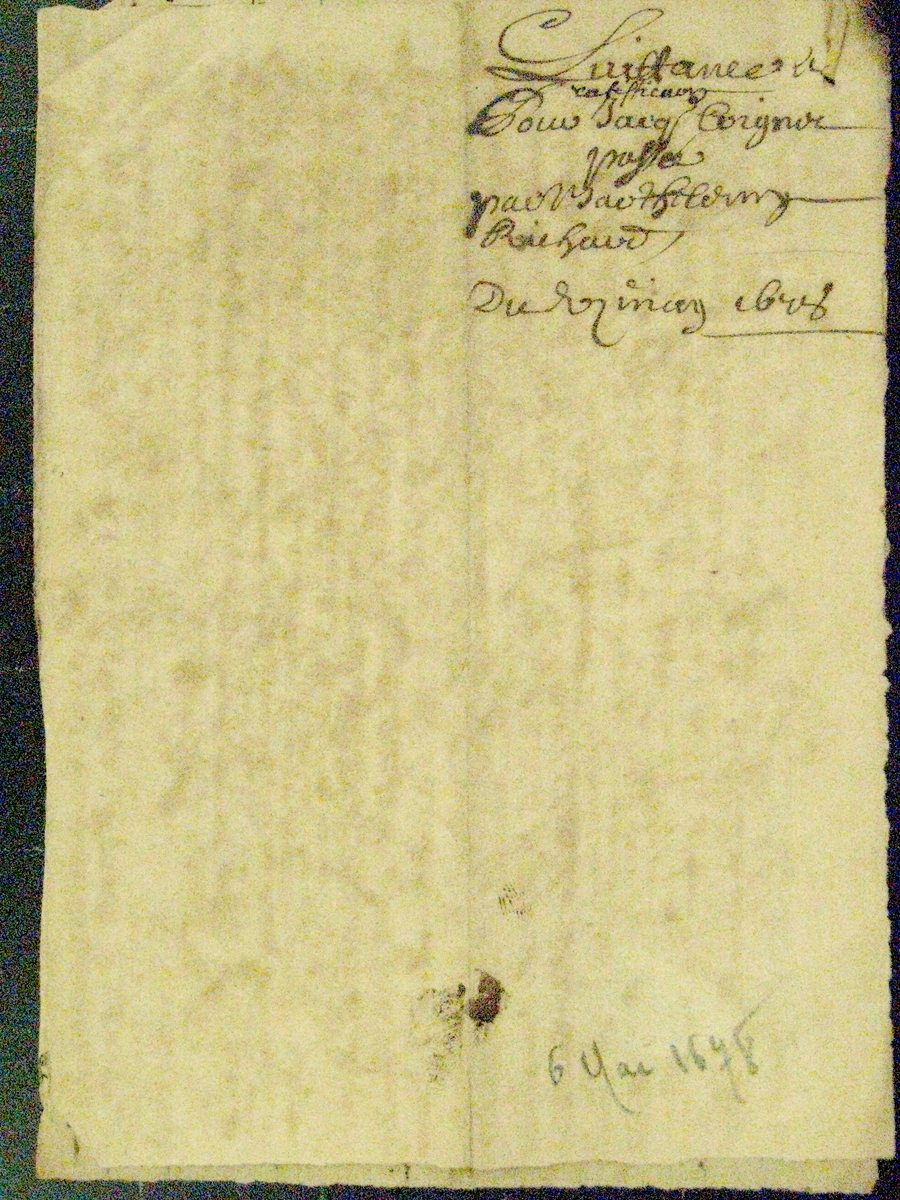 Quittance et
ratiffication
Pour Jacq Coignet
passé
par Barthelemy
Richard
Du may 1678
6 Mai 1678